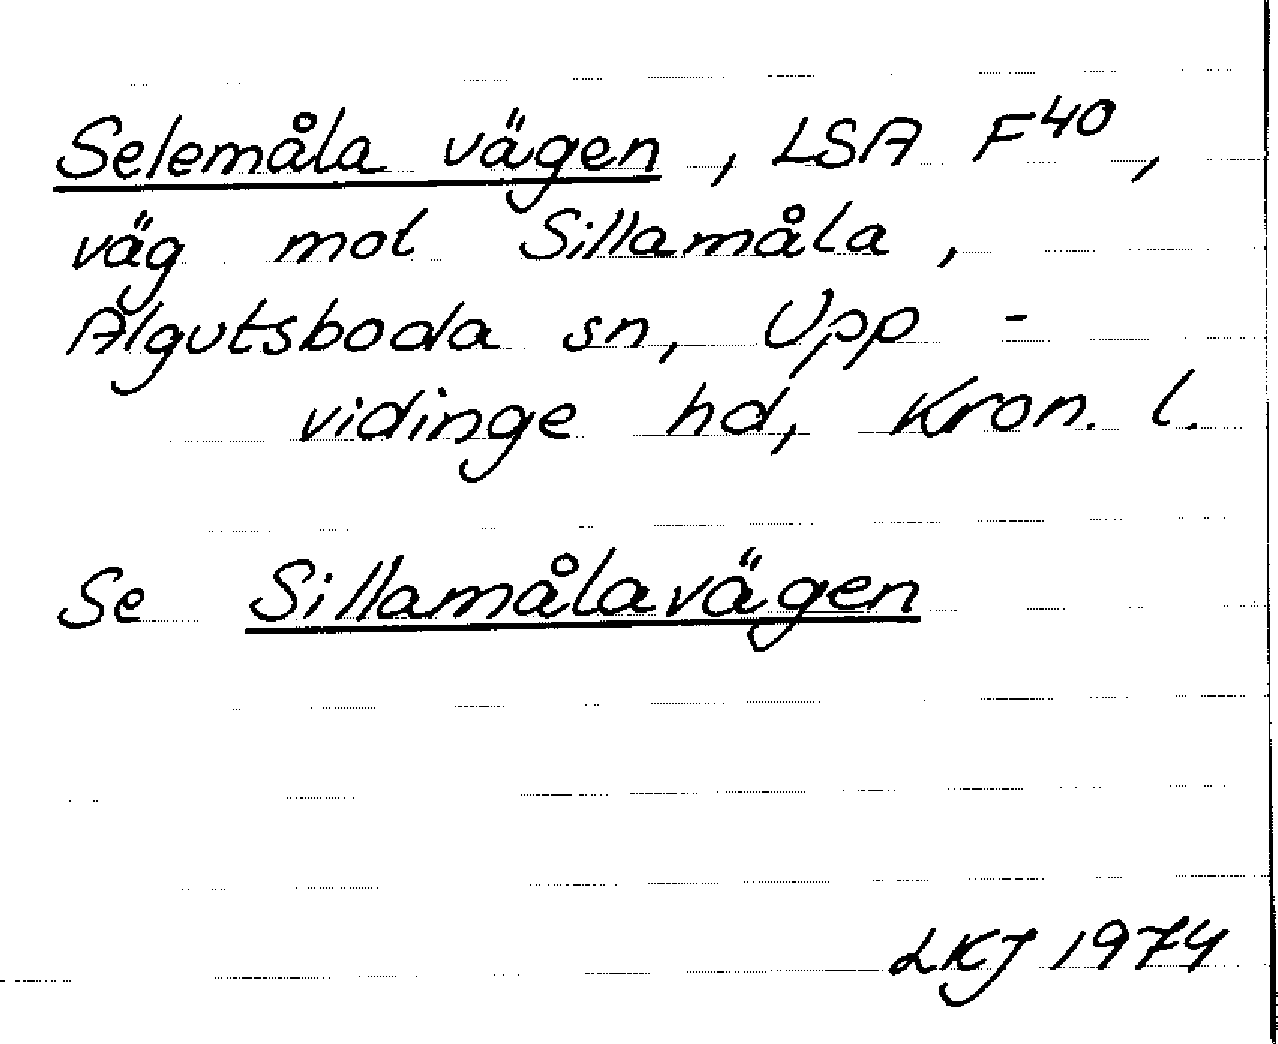 Selemåla vägen, LSA F40,
väg mot Sillamåla,
Algutsboda sn, Upp-
vidinge hd, Kron. l.
Se Sillamålavägen
LKJ 1974